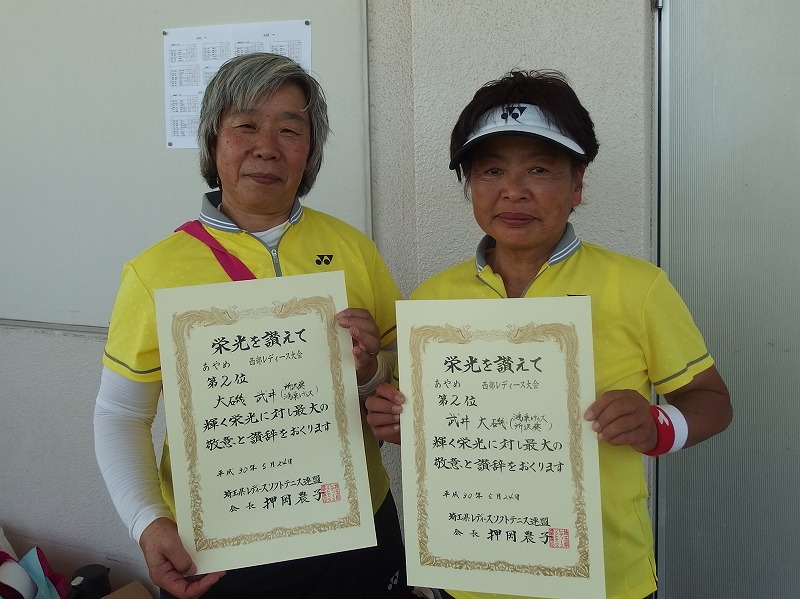 栄光を讃えて
あやめ 西部レディース大会
第2位
大磯 武井
輝く栄光に対し最大の
敬意と讃辞をおくります
平成30年5月24日
埼玉県レディースソフトテニス連盟
会長 押岡農子
栄光を讃えて
あやめ 西部レディース大会
第2位
武井 大磯
輝く栄光に対し最大の
敬意と讃辞をおくります
平成30年5月24日
埼玉県レディースソフトテニス連盟
会長 押岡農子